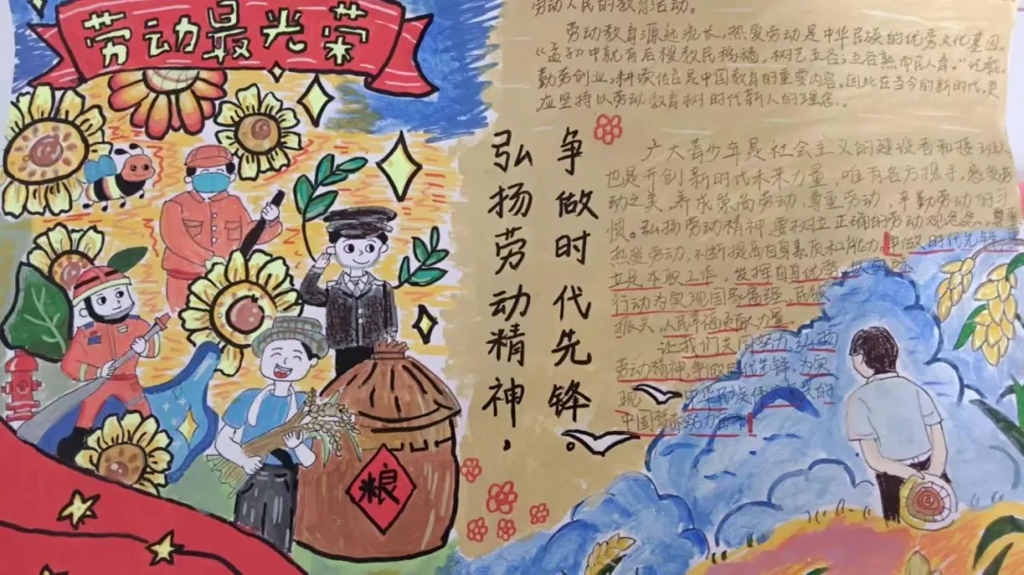 劳动最光荣
弘扬劳动精神，
争做时代先锋。
粮
劳动人民的教育活动。
劳动教育源远流长，热爱劳动是中华民族的优秀文化基因。
《孟子》中就有后稷教民稼穑，树艺五谷；五谷熟而民人育。"记载。
勤劳创业、耕读传言是中国教育的重要内容。因此在当今的新时代，更
应坚持以劳动教育树时代新人的理念。
广大青少年是社会主义的建设者和接班人
也是开创新时代未来力量，唯有各方携手，感受劳
动之美，养成崇尚劳动、尊重劳动、辛勤劳动的习
惯。弘扬劳动精神，要树立正确的劳动观念，尊重
热爱劳动，不断提高自身素质和能力，争做时代先锋
立足本职工作，发挥自身优势
行动为实现国家富强、民族
振兴、人民幸福贡献力量
让我们共同努力，弘扬
劳动精神，争做时代先锋，为实
现中华民族伟大复兴的
中国梦努力奋斗！